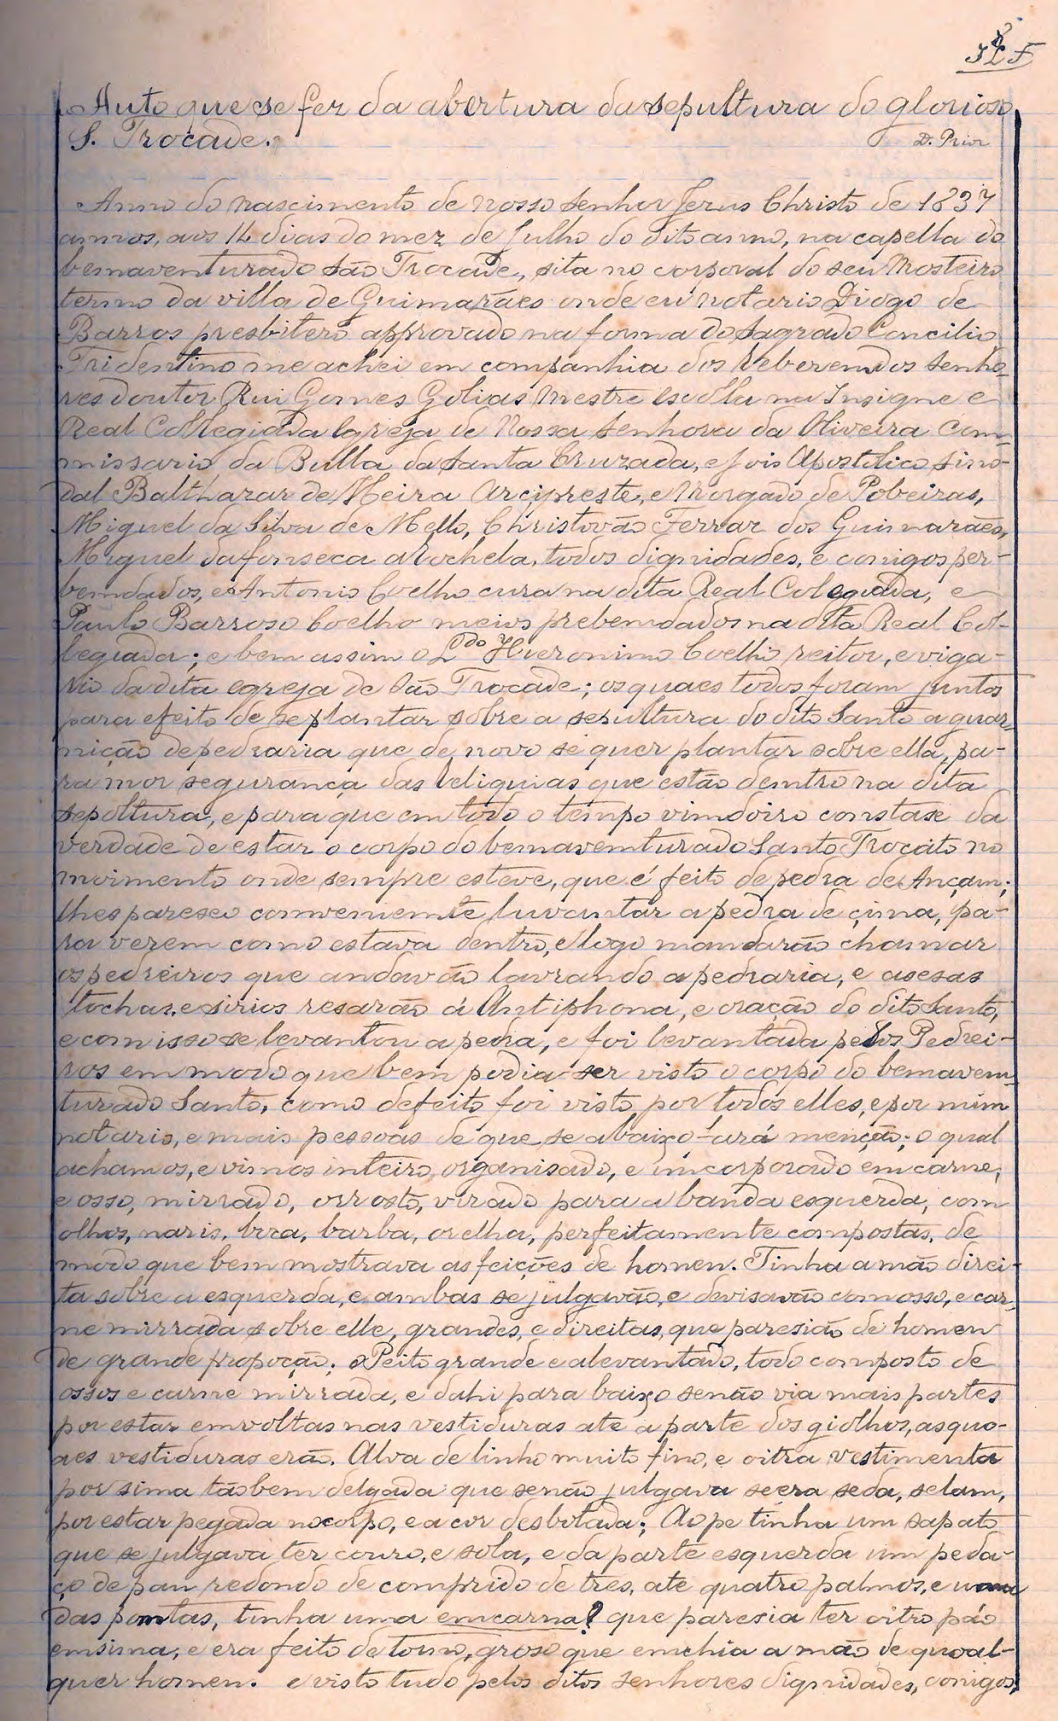 Auto que se fez da abertura da sepultura do glorioso
S. Trocade.
D. Prior
Anno do nascimento de nosso senhor Jezus Christo de 1837
annos, aos 14 dias do mez de Julho do dito anno, na capella do
bemaventurado são Trocade, sita no corsoval do seu Mosteiro
termo da villa de Guimarães onde eu notario Diogo de
Barros presbitero approvado na forma do Sagrado Concilio
Tridentino me achei em companhia dos Reverendos senho-
res doutor Rui Gomes Golias Mestre escolla na Insigne e
Real Collegiada Egreja de Nossa Senhora da Oliveira Com-
missario da Bulla da Santa Cruzada, e Jois Apostolico Sino-
dal Balthazar de Meira Arcipreste, e Morgado de Pobeiras,
Miguel da Silva de Mello, Christovão Ferraz dos Guimarães,
Miguel da fonseca Arochela, todos dignidades, e conigos per-
bendados, e Antonio Coelho cura na dita Real Colegiada, e
Paulo Barroso Coelho meios prebendados na dita Real Col-
legiada; e bem assim o L.do Hieronimo Coelho reitor, e viga-
rio da dita egreja de São Trocade; os quaes todos foram juntos
para efeito de se plantar sobre a sepultura do dito Santo a guar-
nição de pedraria que de novo se quer plantar sobre ella, pa-
ra mor segurança das reliquias que estão dentro na dita
sepoltura, e para que em todo o tempo vindoiro constase da
verdade de estar o corpo do bemaventurado Santo Trocato no
moimento onde sempre esteve, que é feito de pedra de Ançam;
lhes pareseo conveniente luvantar a pedra de çima, pa-
ra verem como estava dentro, e logo mandarão chamar
os pedreiros que andavão lavrando a pedraria, e asesas
tochas e sirios resarão á Antiphona, e oração do dito Santo,
e com isso se levantou a pedra, e foi levantada pelos Pedrei-
ros em modo que bem podia ser visto o corpo do bemaven-
turado Santo, como defeito foi visto por todos elles, e por mim
notario, e mais pessoas de que se abaixo fará menção; o qual
achamos, e vimos inteiro, organisado, e imcorporado em carne,
e osso, mirrado, o rosto, virado para a banda esquerda, com
olhos, naris, boca, barba, orelha, perfeitamente compostas, de
modo que bem mostrava as feições de homen. Tinha a mão direi-
ta sobre a esquerda, e ambas se julgavão, e devisavão com osso, e car-
ne mirrada sobre elle, grandes, e direitas, que paresião de homen
de grande propoção; o Peito grande e alevantado, todo composto de
ossos e carne mirrada, e dahi para baixo senão via mais partes
por estar envoltas nas vestiduras até a parte dos giolhos, as quo-
aes vestiduras erão. Alva de linho muito fino, e oitra vestimenta
por sima tãobem delgada que senão julgava se era seda, se lam,
por estar pegada no corpo, e a cor desbotada; Ao pe tinha um sapato
que se julgava ter couro, e sola, e da parte esquerda um peda-
ço de pau redondo de comprido de tres, ate quatro palmos, e uma
das pontas, tinha uma emcarna? que paresia ter oitro páo
emsima, e era feito de torno, groso que enchia a mão de quoal-
quer homen. e visto tudo pelos ditos senhores dignidades, conigos,